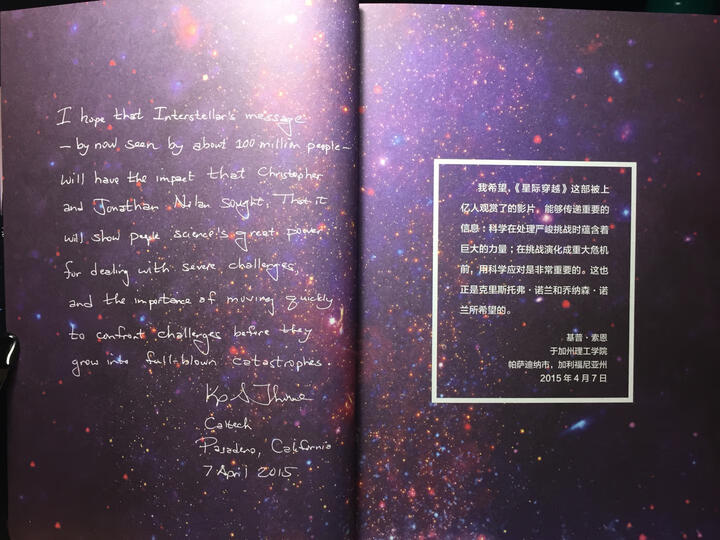 I hope that Interstellar's message
— by now seen by about 100 million people —
will have the impact that Christopher
and Jonathan Nolan sought. That it
will show people science's great power
for dealing with severe challenges,
and the importance of moving quickly
to confront challenges before they
grow into full-blown catastrophes.
Kip S. Thorne
Caltech
Pasadena, California
7 April 2015
我希望,《星际穿越》这部被上
亿人观赏了的影片，能够传递重要的
信息：科学在处理严峻挑战时蕴含着
巨大的力量；在挑战演化成重大危机
前，用科学应对是非常重要的。这也
正是克里斯托弗·诺兰和乔纳森·诺
兰所希望的。
基普·索恩
于加州理工学院
帕萨迪纳市，加利福尼亚州
2015 年 4 月 7 日